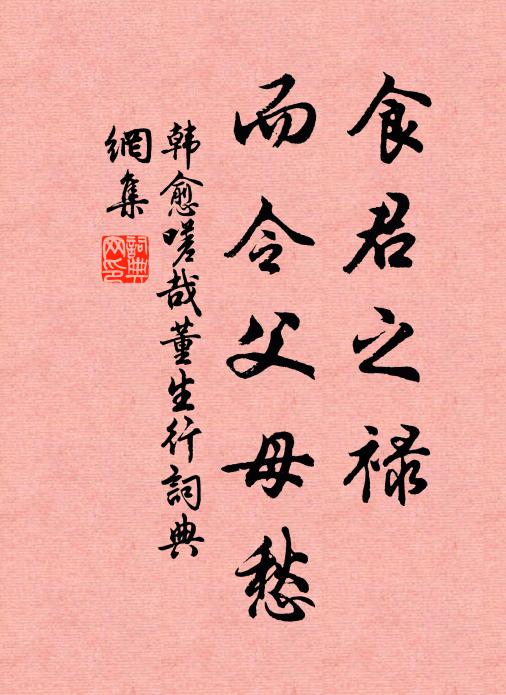 食君之禄
而令父母愁
韩愈嗟哉董生行詞典
網集
詞典
网印